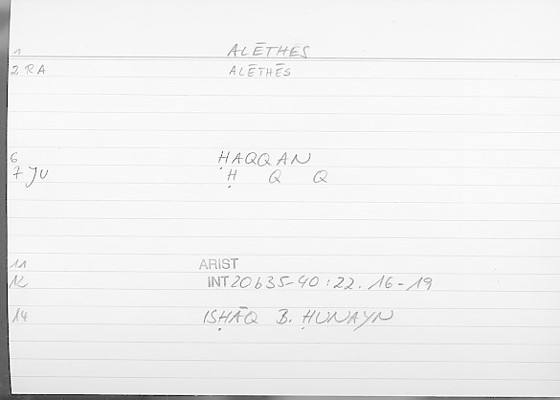 1 ALĒTHES
2 RA ALĒTHĒS
6 ḤAQQAN
7 JU Ḥ Q Q
11 ARIST
12 INT 20b35-40:22.16-19
14 ISḤĀQ B. ḤUNAYN